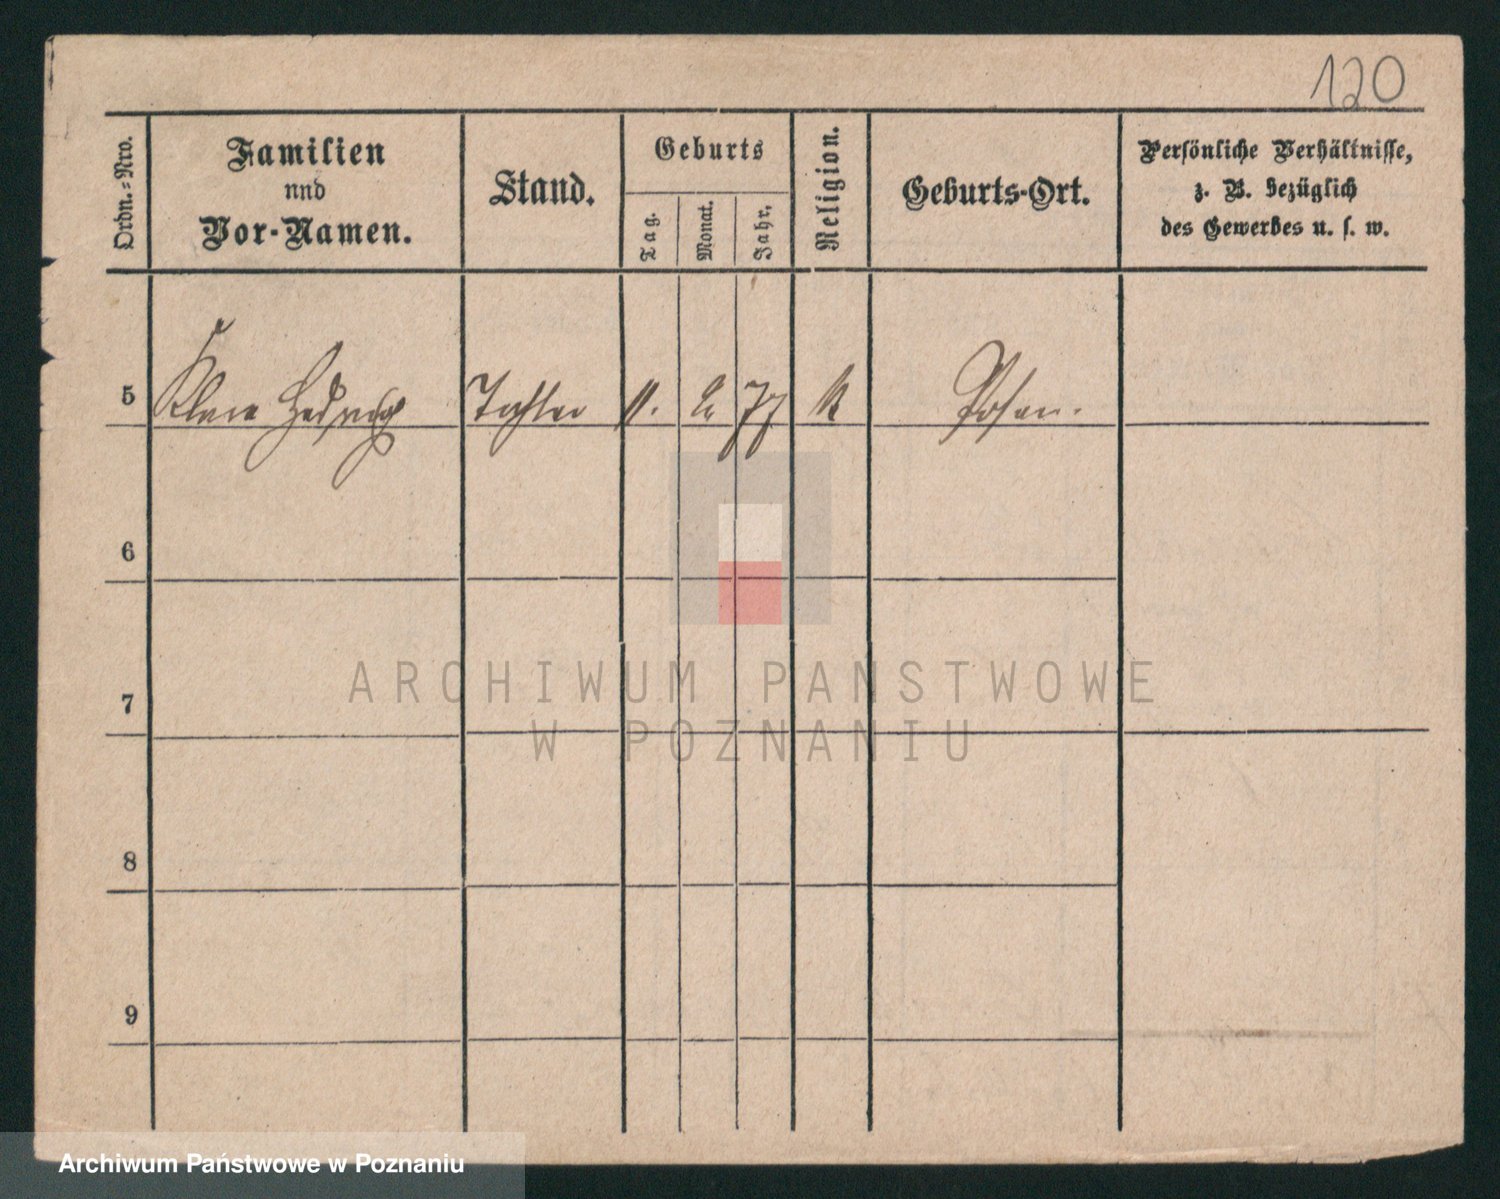 120
Ordn.=Nro.
Familien
und
Vor-Namen.
Stand.
Geburts
Tag.
Monat.
Jahr.
Religion.
Geburts-Ort.
Persönliche Verhältnisse,
z. B. bezüglich
des Gewerbes u. s. w.
5 Klara Hedwig Tochter 11. 2 77 k Posen.
6
7
8
9
ARCHIWUM PAŃSTWOWE
W POZNANIU
Archiwum Państwowe w Poznaniu